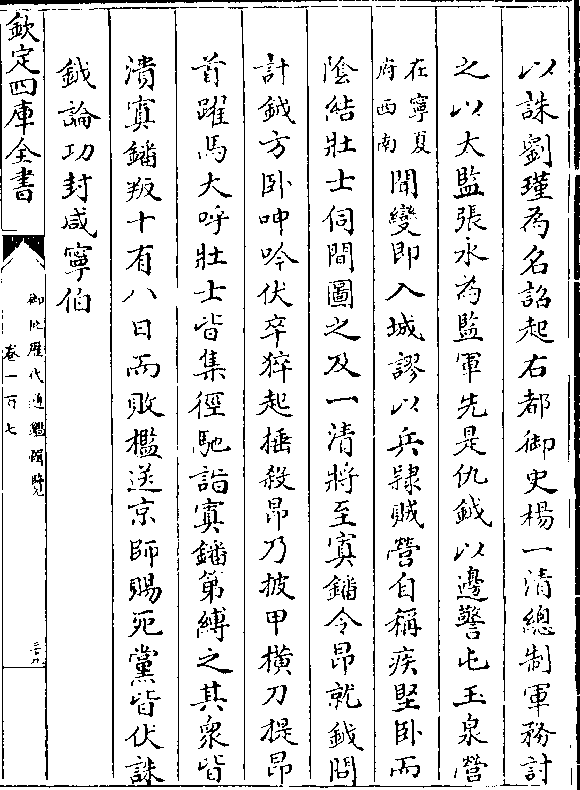 以誅劉瑾為名詔起右都御史楊一清總制軍務討
之以太監張永為監軍先是仇鉞以邊警屯玉泉營
在寧夏
府西南
聞變即入城謬以兵隸賊營自稱疾堅卧而
陰結壯士伺間圖之及一清將至寘鐇令昂就鉞問
計鉞方卧呻吟伏卒猝起捶殺昂乃披甲橫刀提昂
首躍馬大呼壯士皆集徑馳詣寘鐇第縛之其衆皆
潰寘鐇叛十有八日而敗檻送京師賜死黨皆伏誅
鉞論功封咸寧伯
欽定四庫全書
御批歷代通鑑輯覽
卷一百七